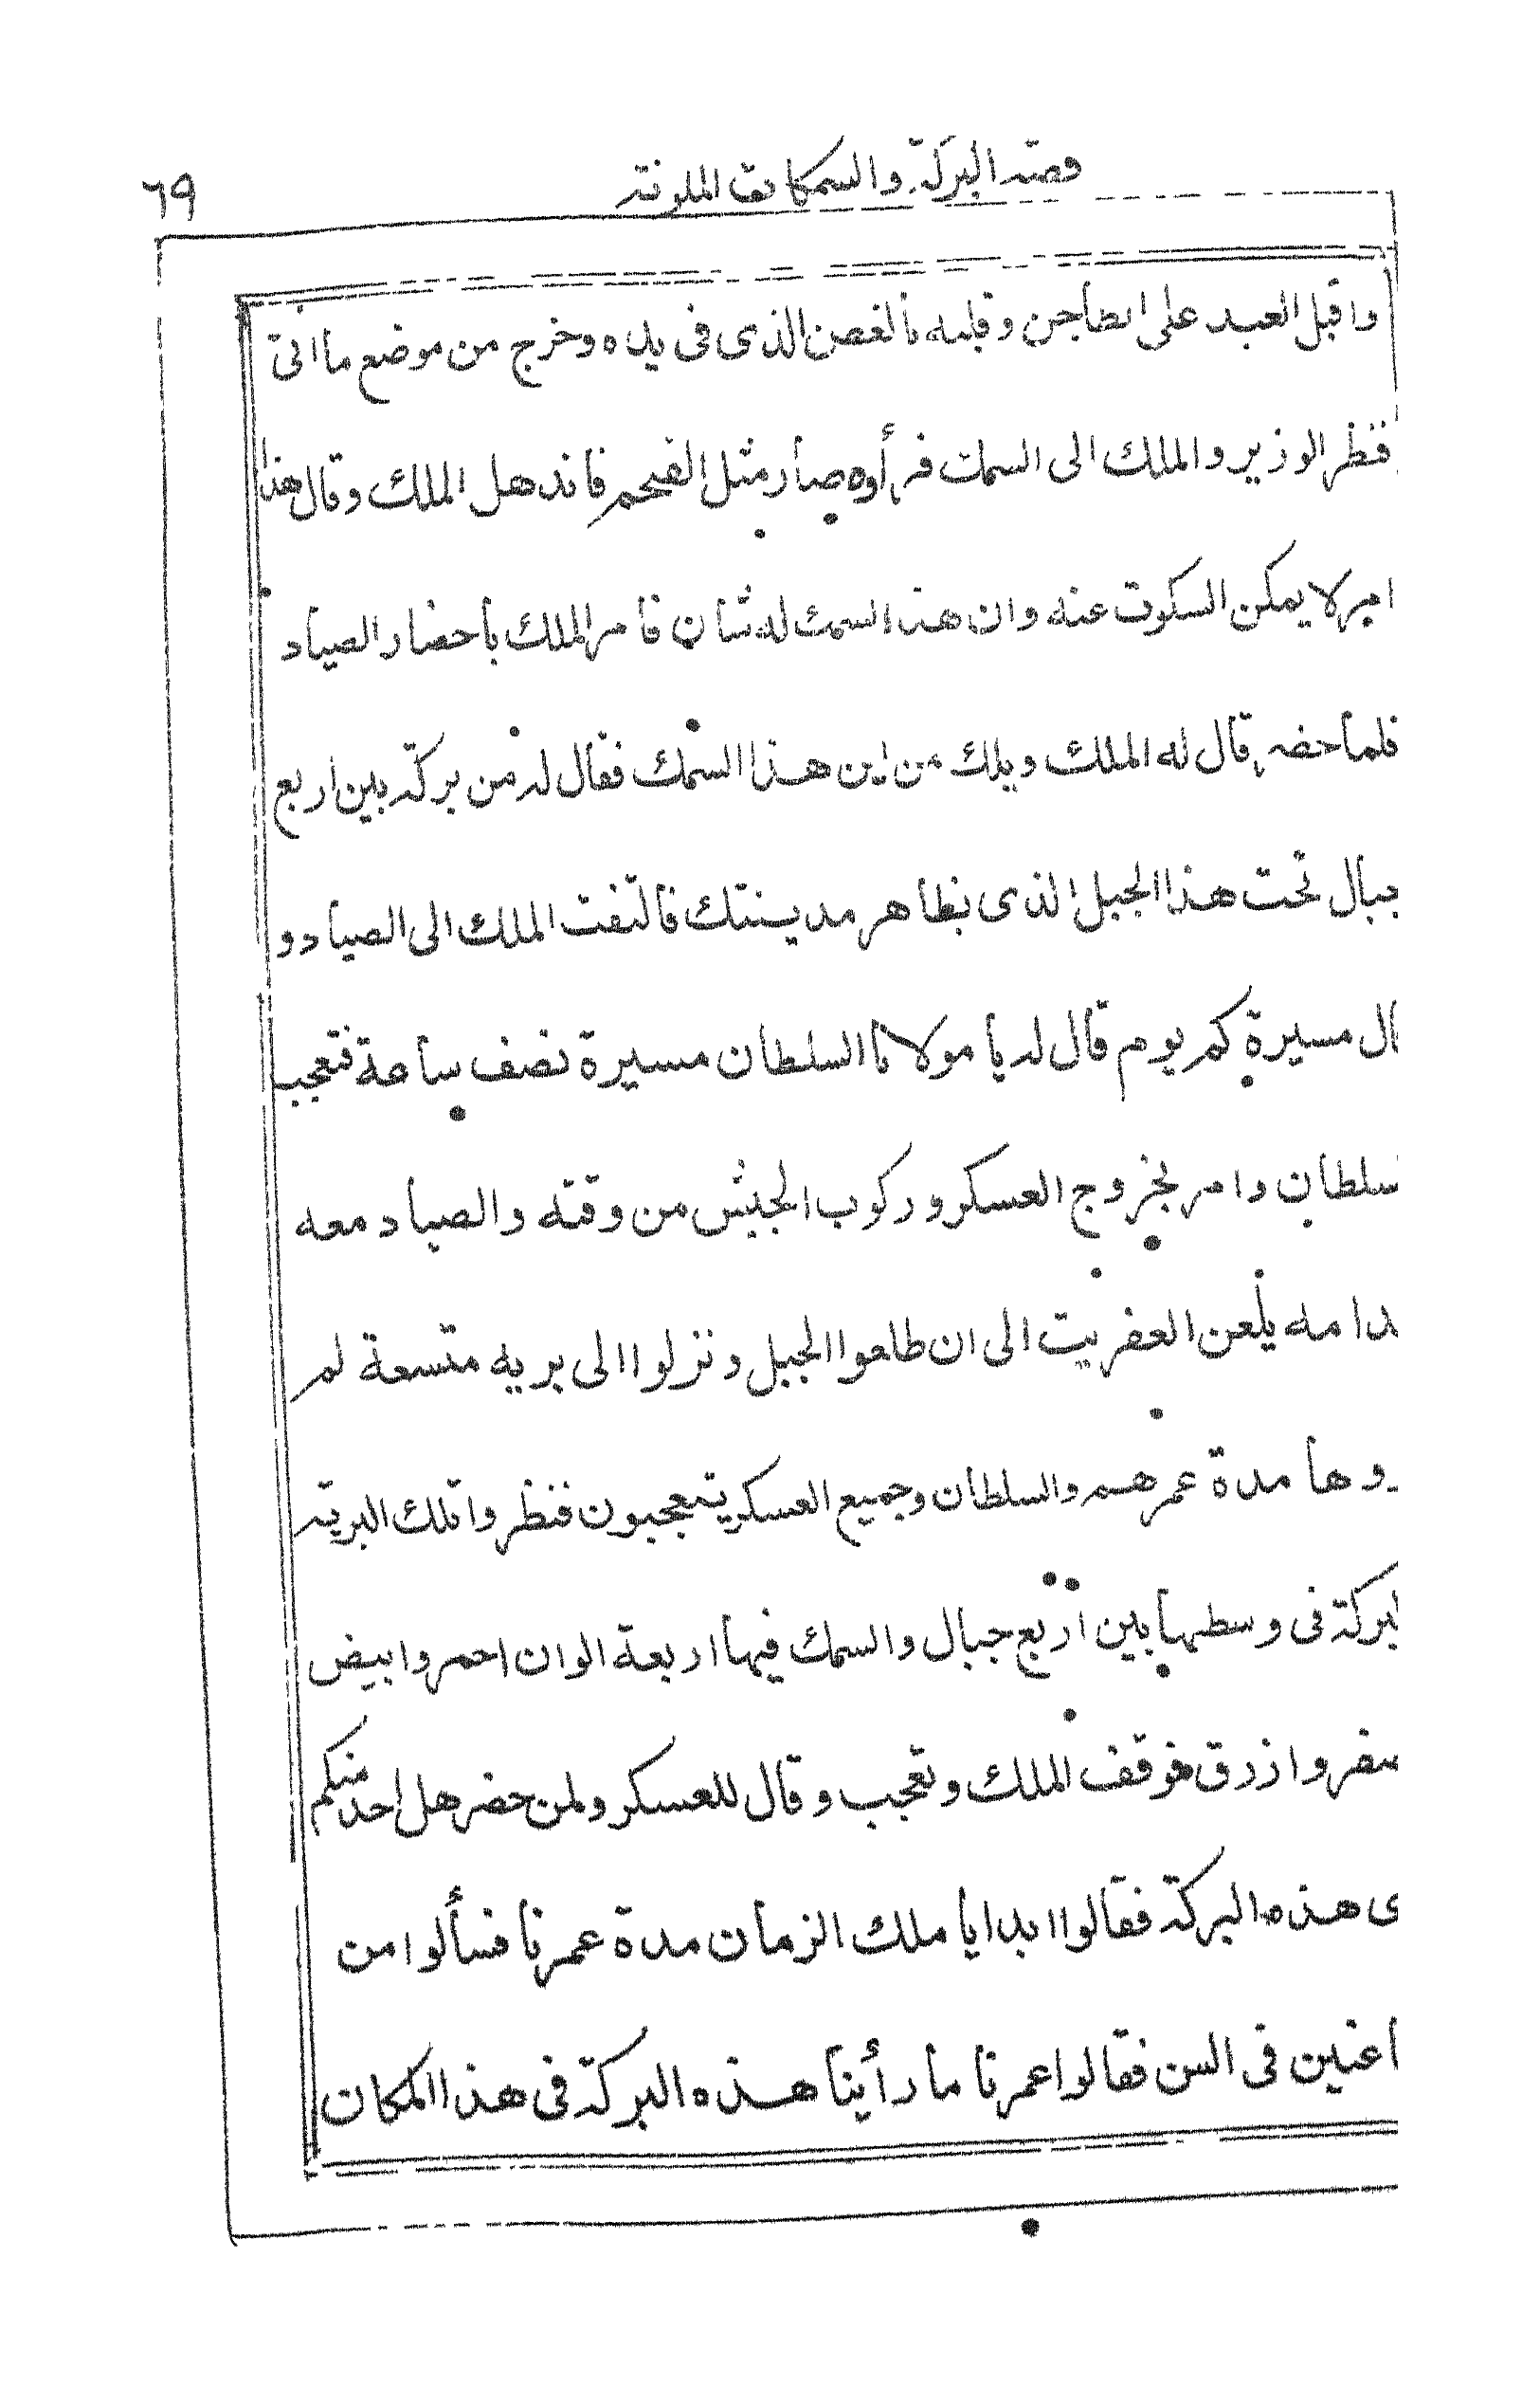 قصة البركة والسمكات الملونة
٦٩
واقبل العبد على الطاجن وقلبه بالغصن الذى فى يده وخرج من موضع ما اتى
فنظر الوزير والملك الى السمك فرأوه صار مثل الفحم فاندهل الملك وقال هذا
امر لا يمكن السكوت عنه وان هذا السمك له شان فأمر الملك بأحضار الصياد
فلما حضر قال له الملك ويلك من اين هذا السمك فقال له من بركة بين اربع
جبال تحت هذا الجبل الذى بظاهر مدينتك فالتفت الملك الى الصياد و
ال مسيرة كم يوم قال له يا مولانا السلطان مسيرة نصف ساعة فتعجب
سلطان وامر بخروج العسكر وركوب الجيش من وقته والصياد معه
دامه يلعن العفريت الى ان طلعوا الجبل ونزلوا الى بريه متسعة لم
روها مدة عمرهم والسلطان وجميع العسكر يتعجبون فنظروا تلك البرية
لبركة فى وسطها بين اربع جبال والسمك فيها اربعة الوان احمر وابيض
صفر وازرق فوقف الملك وتعجب وقال للعسكر ولمن حضر هل احد منكم
ى هذه البركة فقالوا ابدا يا ملك الزمان مدة عمرنا فسألوا من
اعنين فى السن فقالوا عمرنا ما رأينا هذه البركة فى هذا المكان